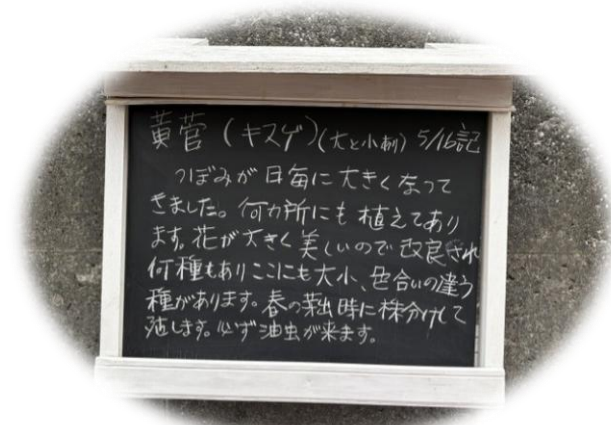 黄菅(キスゲ)(大と小創) 5/16記
つぼみが日毎に大きくなって
きました。何カ所にも植えてあり
ます。花が大きく美しいので改良され
何種もありここにも大小、色合いの違う
種があります。春の芽出時に株分けして
殖します。必ず油虫が来ます。